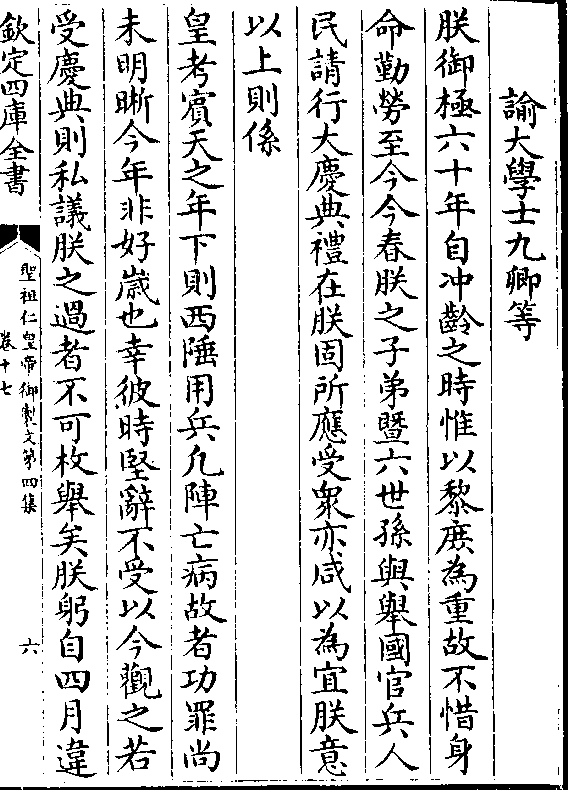 諭大學士九卿等
朕御極六十年自冲齡之時惟以黎庶為重故不惜身
命勤勞至今今春朕之子弟暨六世孫與舉國官兵人
民請行大慶典禮在朕固所應受衆亦咸以為宜朕意
以上則係
皇考賓天之年下則西陲用兵凡陣亡病故者功罪尚
未明晰今年非好歳也幸彼時堅辭不受以今觀之若
受慶典則私議朕之過者不可枚舉矣朕躬自四月違
欽定四庫全書
聖祖仁皇帝御製文第四集
卷十七
六